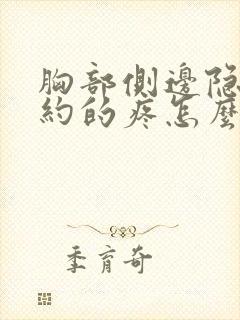 胸部側邊隐
約的疼怎麼
季育奇